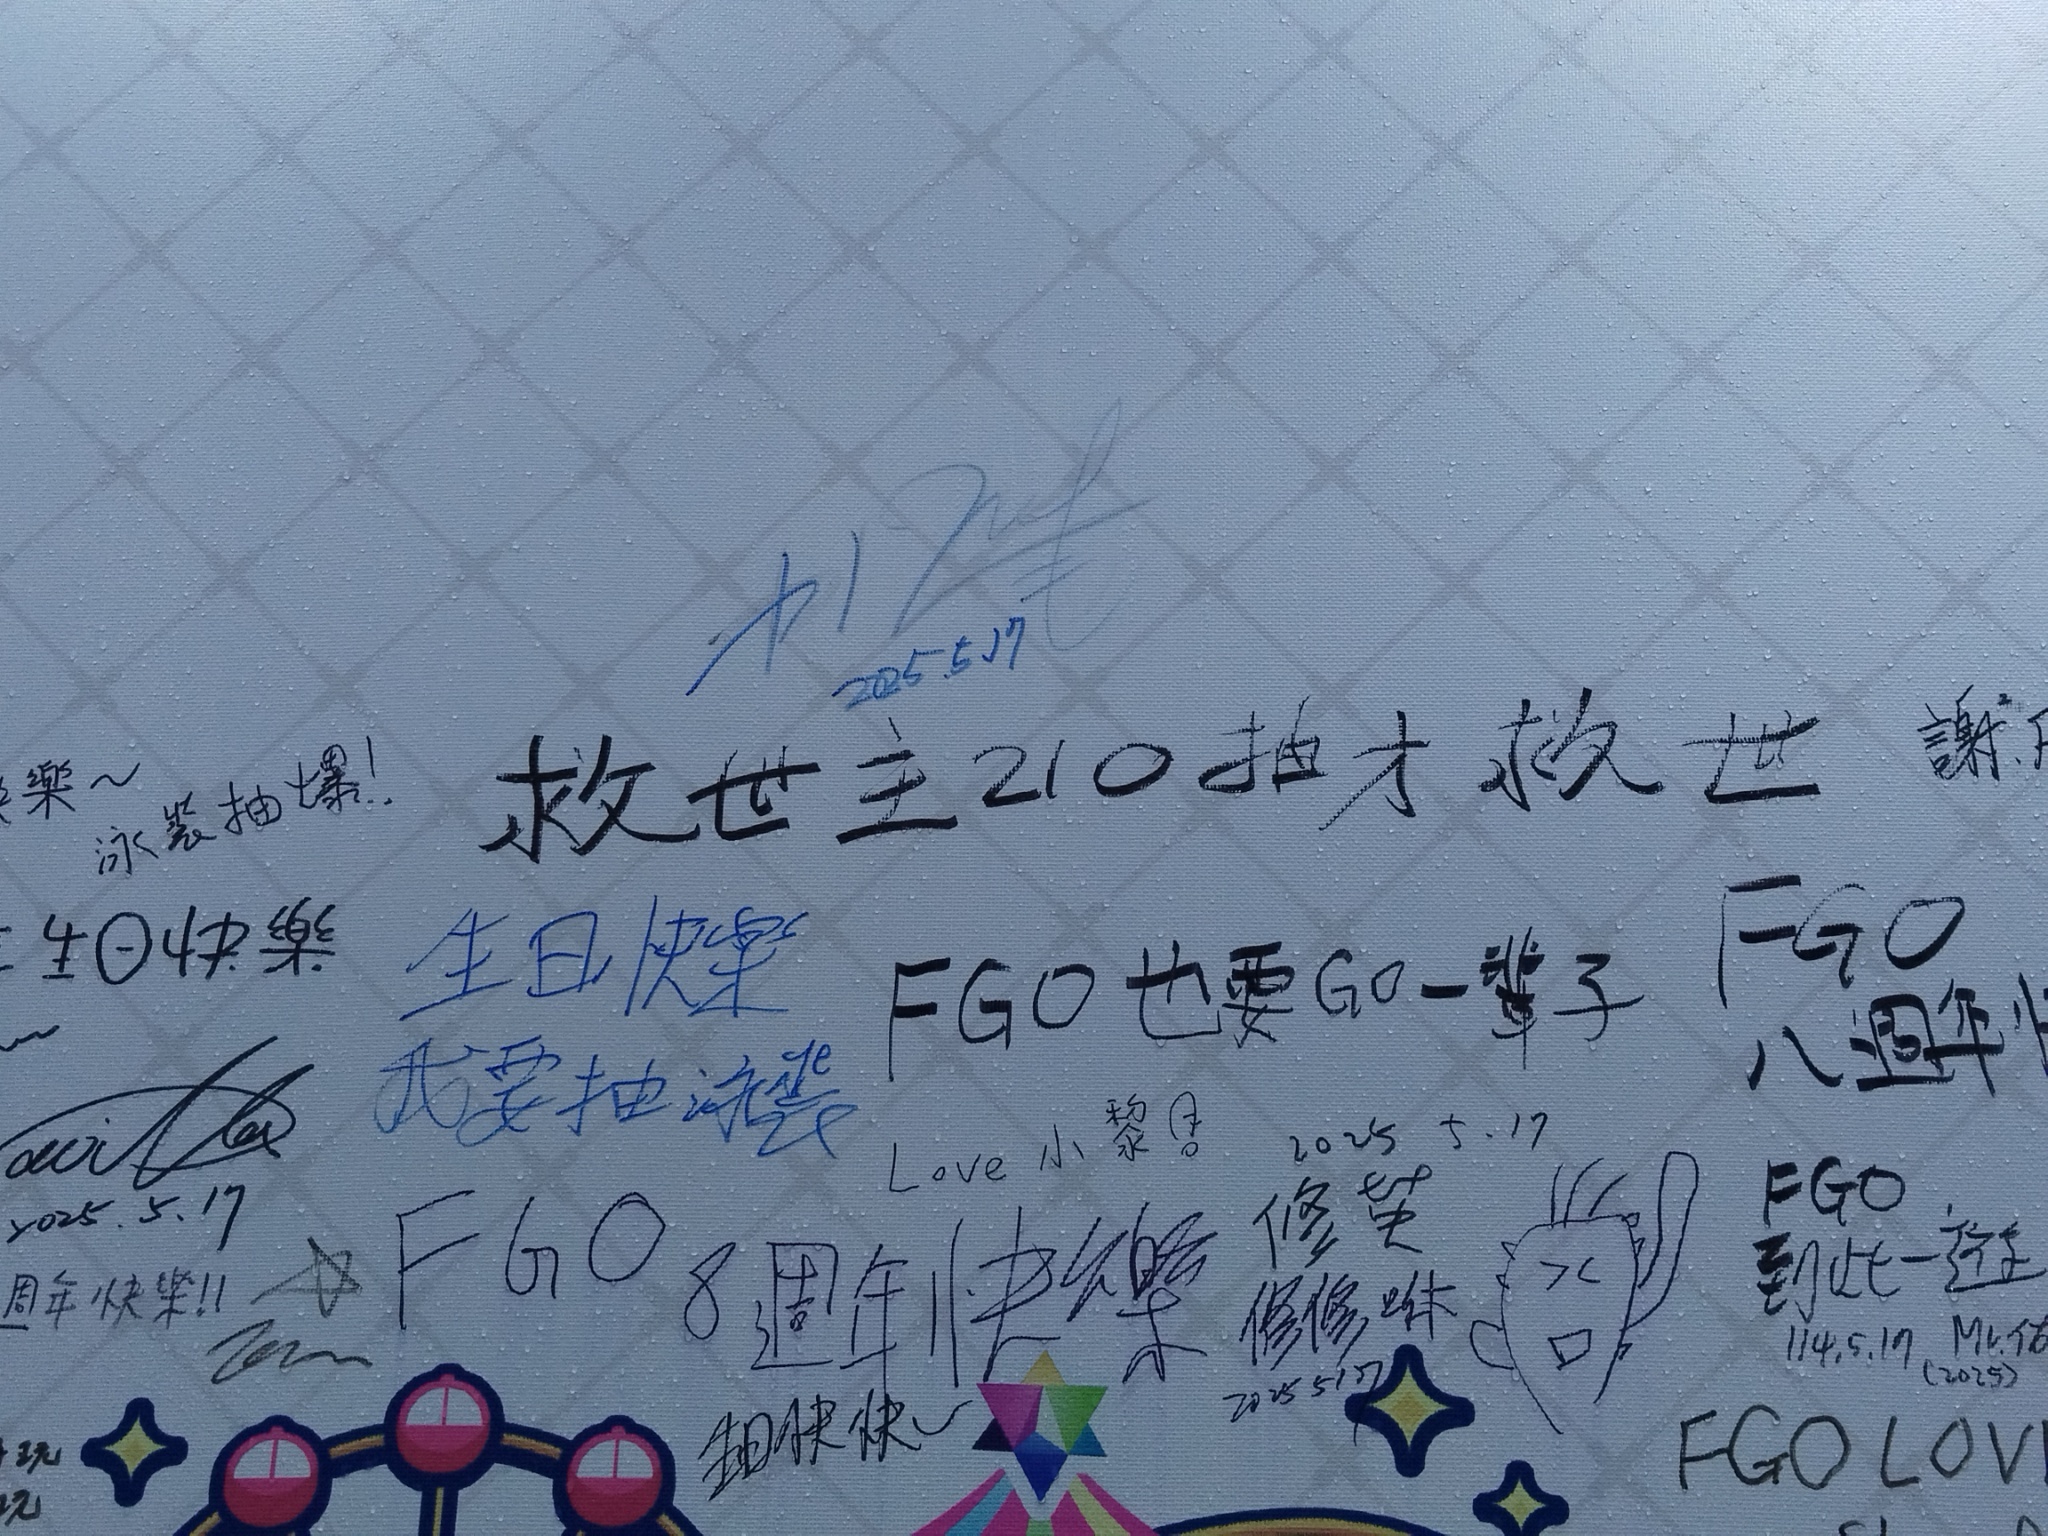 2025.5.17
救世主210抽才救世
謝
樂~
泳裝抽爆!!
生日快樂
生日快樂
我要抽泳裝
FGO也要GO一輩子
FGO
八週年快
2025.5.17
週年快樂!!
Love 小黎
FGO 8週年快樂
2025 5.17
修
修修咪
2025 5.17
FGO
到此一遊
114.5.17 Mr.佑
(2025)
生日快快~
FGO LOV
玩
玩